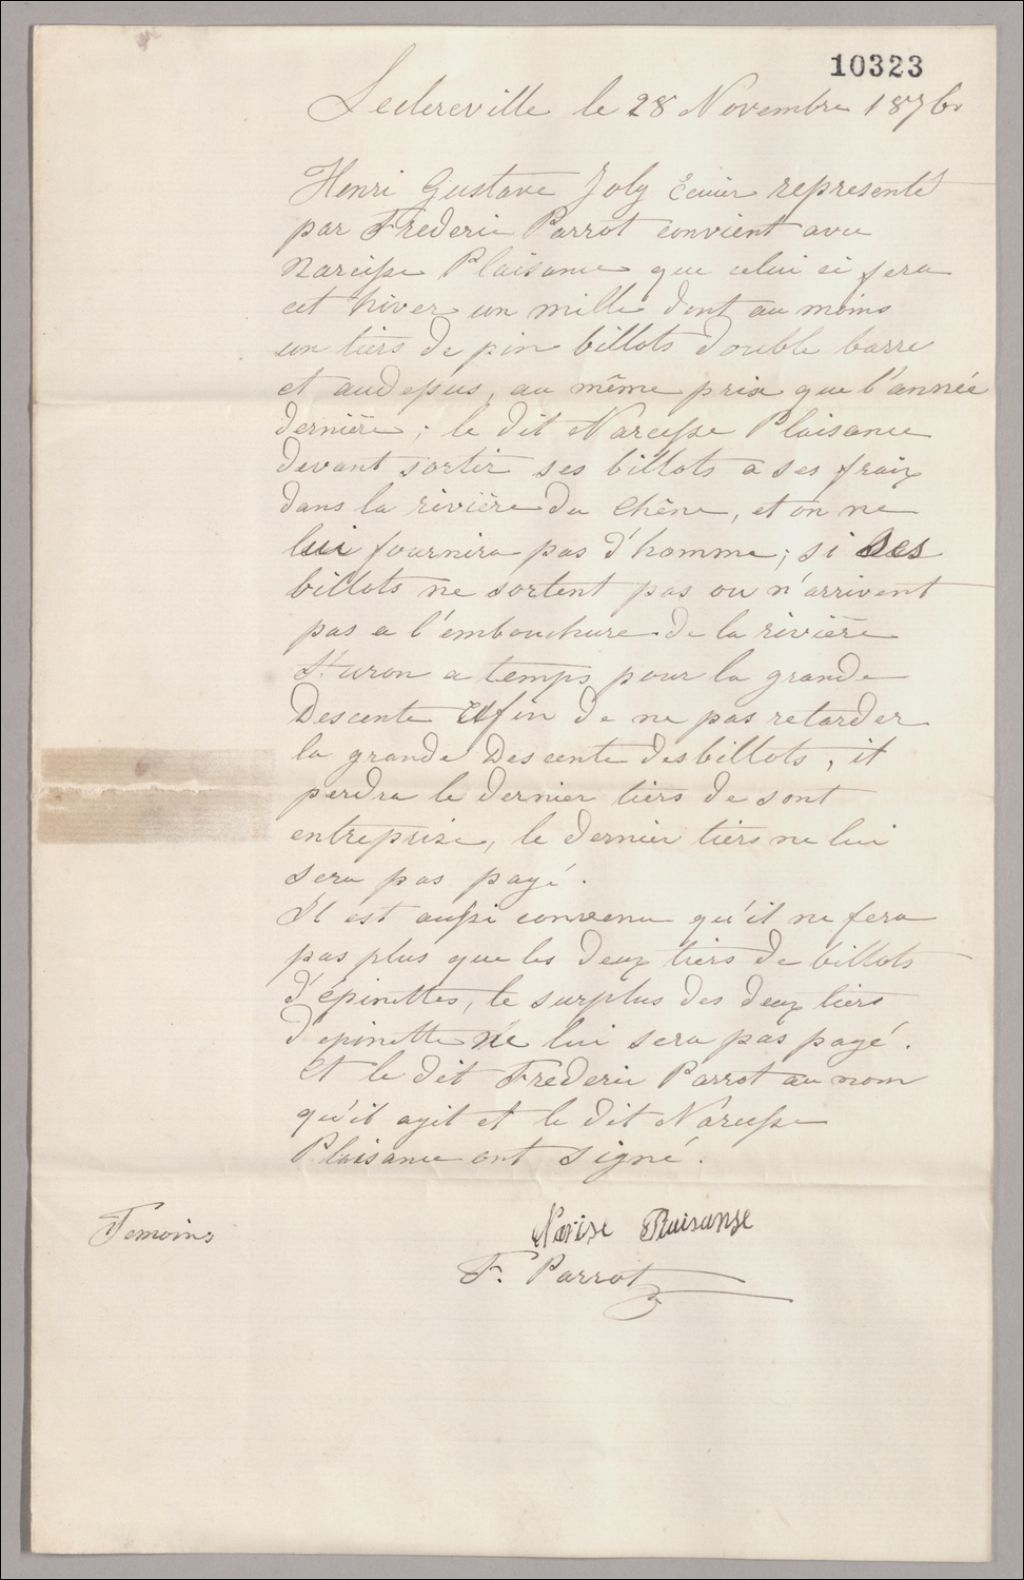 10323
Leclereville le 28 Novembre 1876
Henri Gustave Joly Ecuier representé
par Frederic Parrot convient avec
Narcisse Plaisance que celui ci fera
cet hiver un mille dont au moins
un tiers de pin billots double barre
et audessus, au même prix que l'année
dernière; le dit Narcisse Plaisance
devant sortir ses billots a ses fraix
dans la rivière du Chêne, et on ne
lui fournira pas d'homme; si ses
billots ne sortent pas ou n'arrivent
pas a l'embouchure de la rivière
a temps pour la grande
Descente afin de ne pas retarder
la grande Descente des billots, il
perdra le dernier tiers de sont
entreprise, le dernier tiers ne lui
sera pas payé.
Il est aussi convenu qu'il ne fera
pas plus que les deux tiers de billots
d'épinettes, le surplus des deux tiers
d'epinette ne lui sera pas payé.
Et le dit Frederic Parrot au nom
qu'il agit et le dit Narcisse
Plaisance ont signé.
Temoins
Narise Plaisanse
F. Parrot